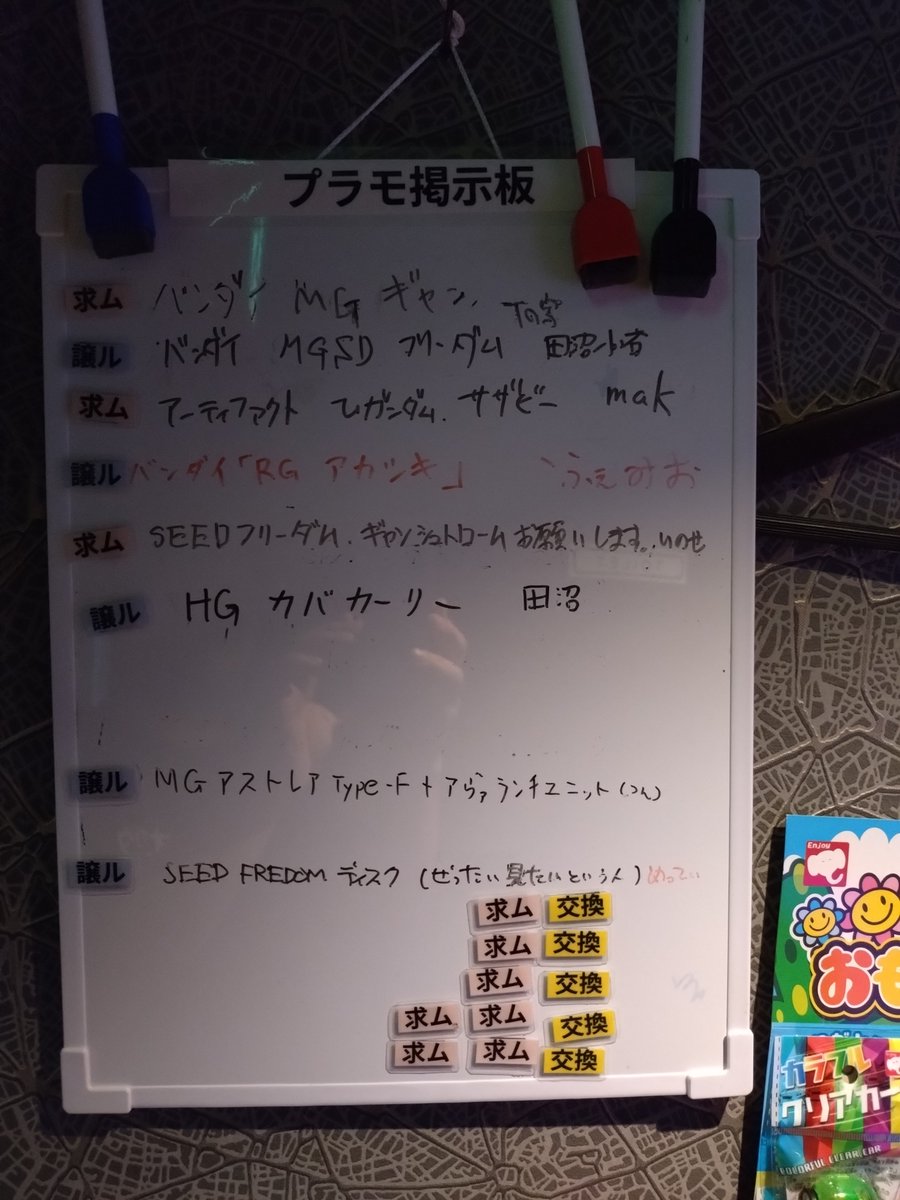 プラモ掲示板
求ム バンダイ MG ギャン Tの字
譲ル バンダイ MGSD フリーダム 田沼
求ム アーティファクト νガンダム、サザビー mak
譲ル バンダイ「RG アカツキ」 ふぇみお
求ム SEEDフリーダム、ギャンシュトロームお願いします。いのせ
譲ル HG カバカーリー 田沼
譲ル MG アストレア Type-F + アヴァランチユニット (つん)
譲ル SEED FREDOM ディスク (ぜったい見たいという人)
求ム 交換
求ム 交換
求ム 交換
求ム 求ム 交換
求ム 求ム 交換
Enjoy
おも
カラフル
クリアカー
COLORFUL CLEAR CAR